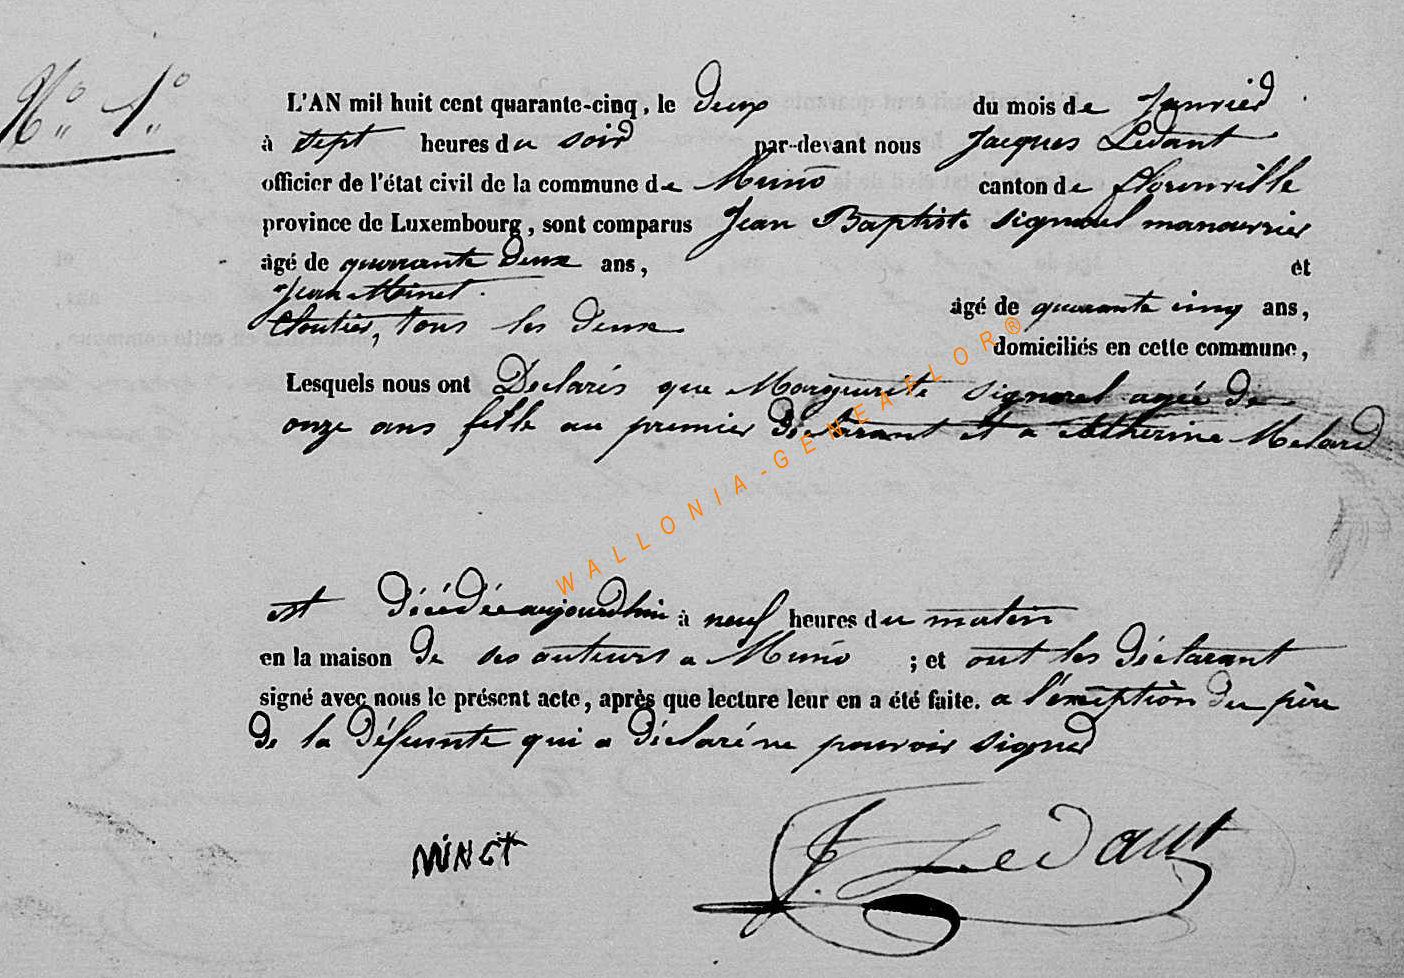 N° 1°
L'AN mil huit cent quarante-cinq, le deux du mois de Janvier
à sept heures du soir par-devant nous Jacques Ledant
officier de l'état civil de la commune de Muno canton de florenville
province de Luxembourg, sont comparus Jean Baptiste Signorel manouvrier
âgé de quarante deux ans, et
Jean Minet.
Cloutier, tous les deux âgé de quarante cinq ans,
domiciliés en cette commune,
Lesquels nous ont Declarés que Marguerite Signorel agée de
onze ans fille au premier Déclarant et a Catherine Melard
est décédée aujourdhui à neuf heures du matin
en la maison de ses auteurs a Muno ; et ont les déclarant
signé avec nous le présent acte, après que lecture leur en a été faite. a l'exception du père
de la défunte qui a déclaré ne pouvoir signer
MINET
J. Ledant
WALLONIA-GENEAFLOR®